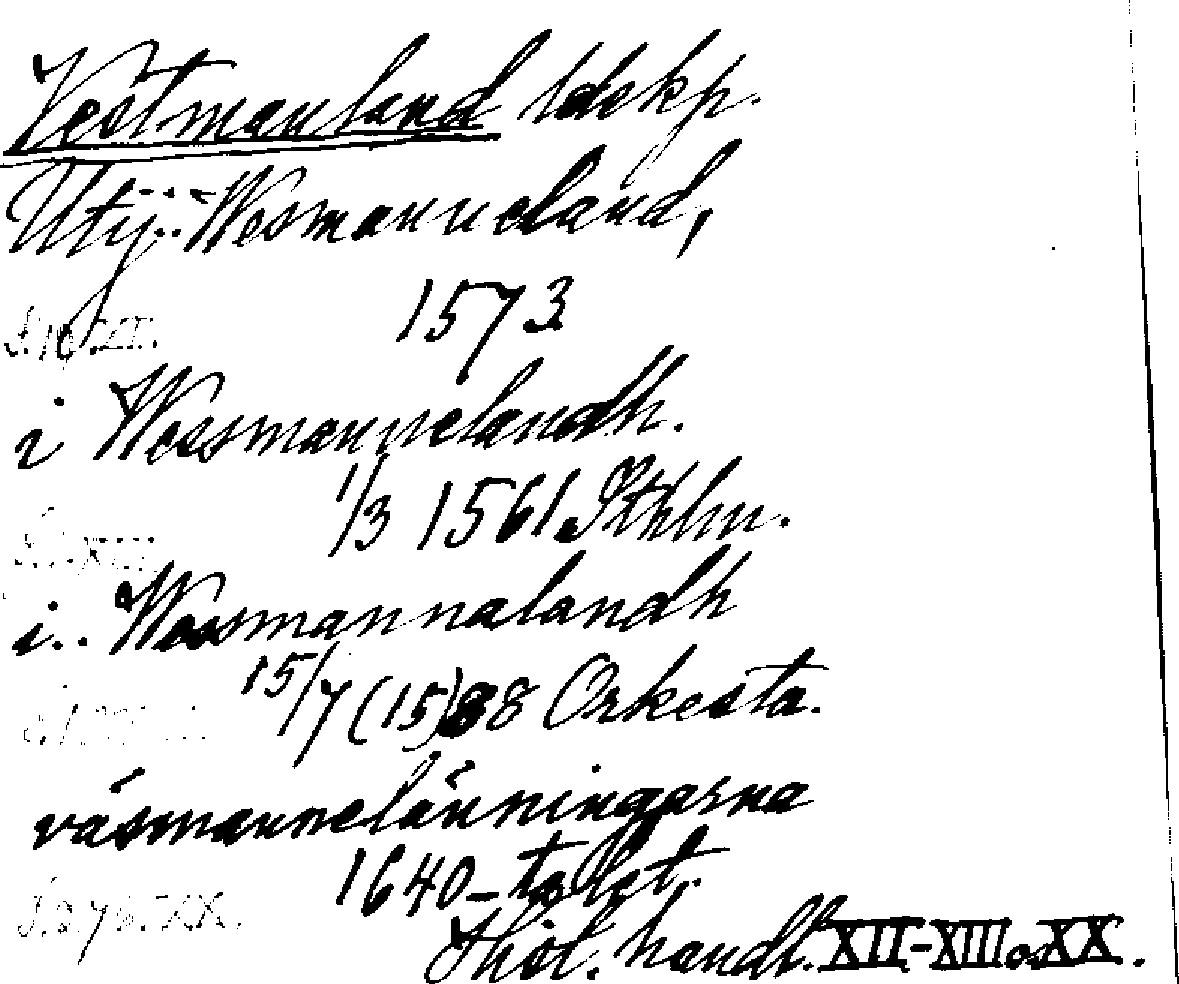 Vestmanland ldskp.
Utj... Wesmanneland,
1573
i Wessmannelandh.
1/3 1561. Sthlm.
i.. Wassmannalandh
15/7 (15)88 Orkesta.
väsmannelänningarna
1640-talet.
Hist. handl. XII-XIII o XX.